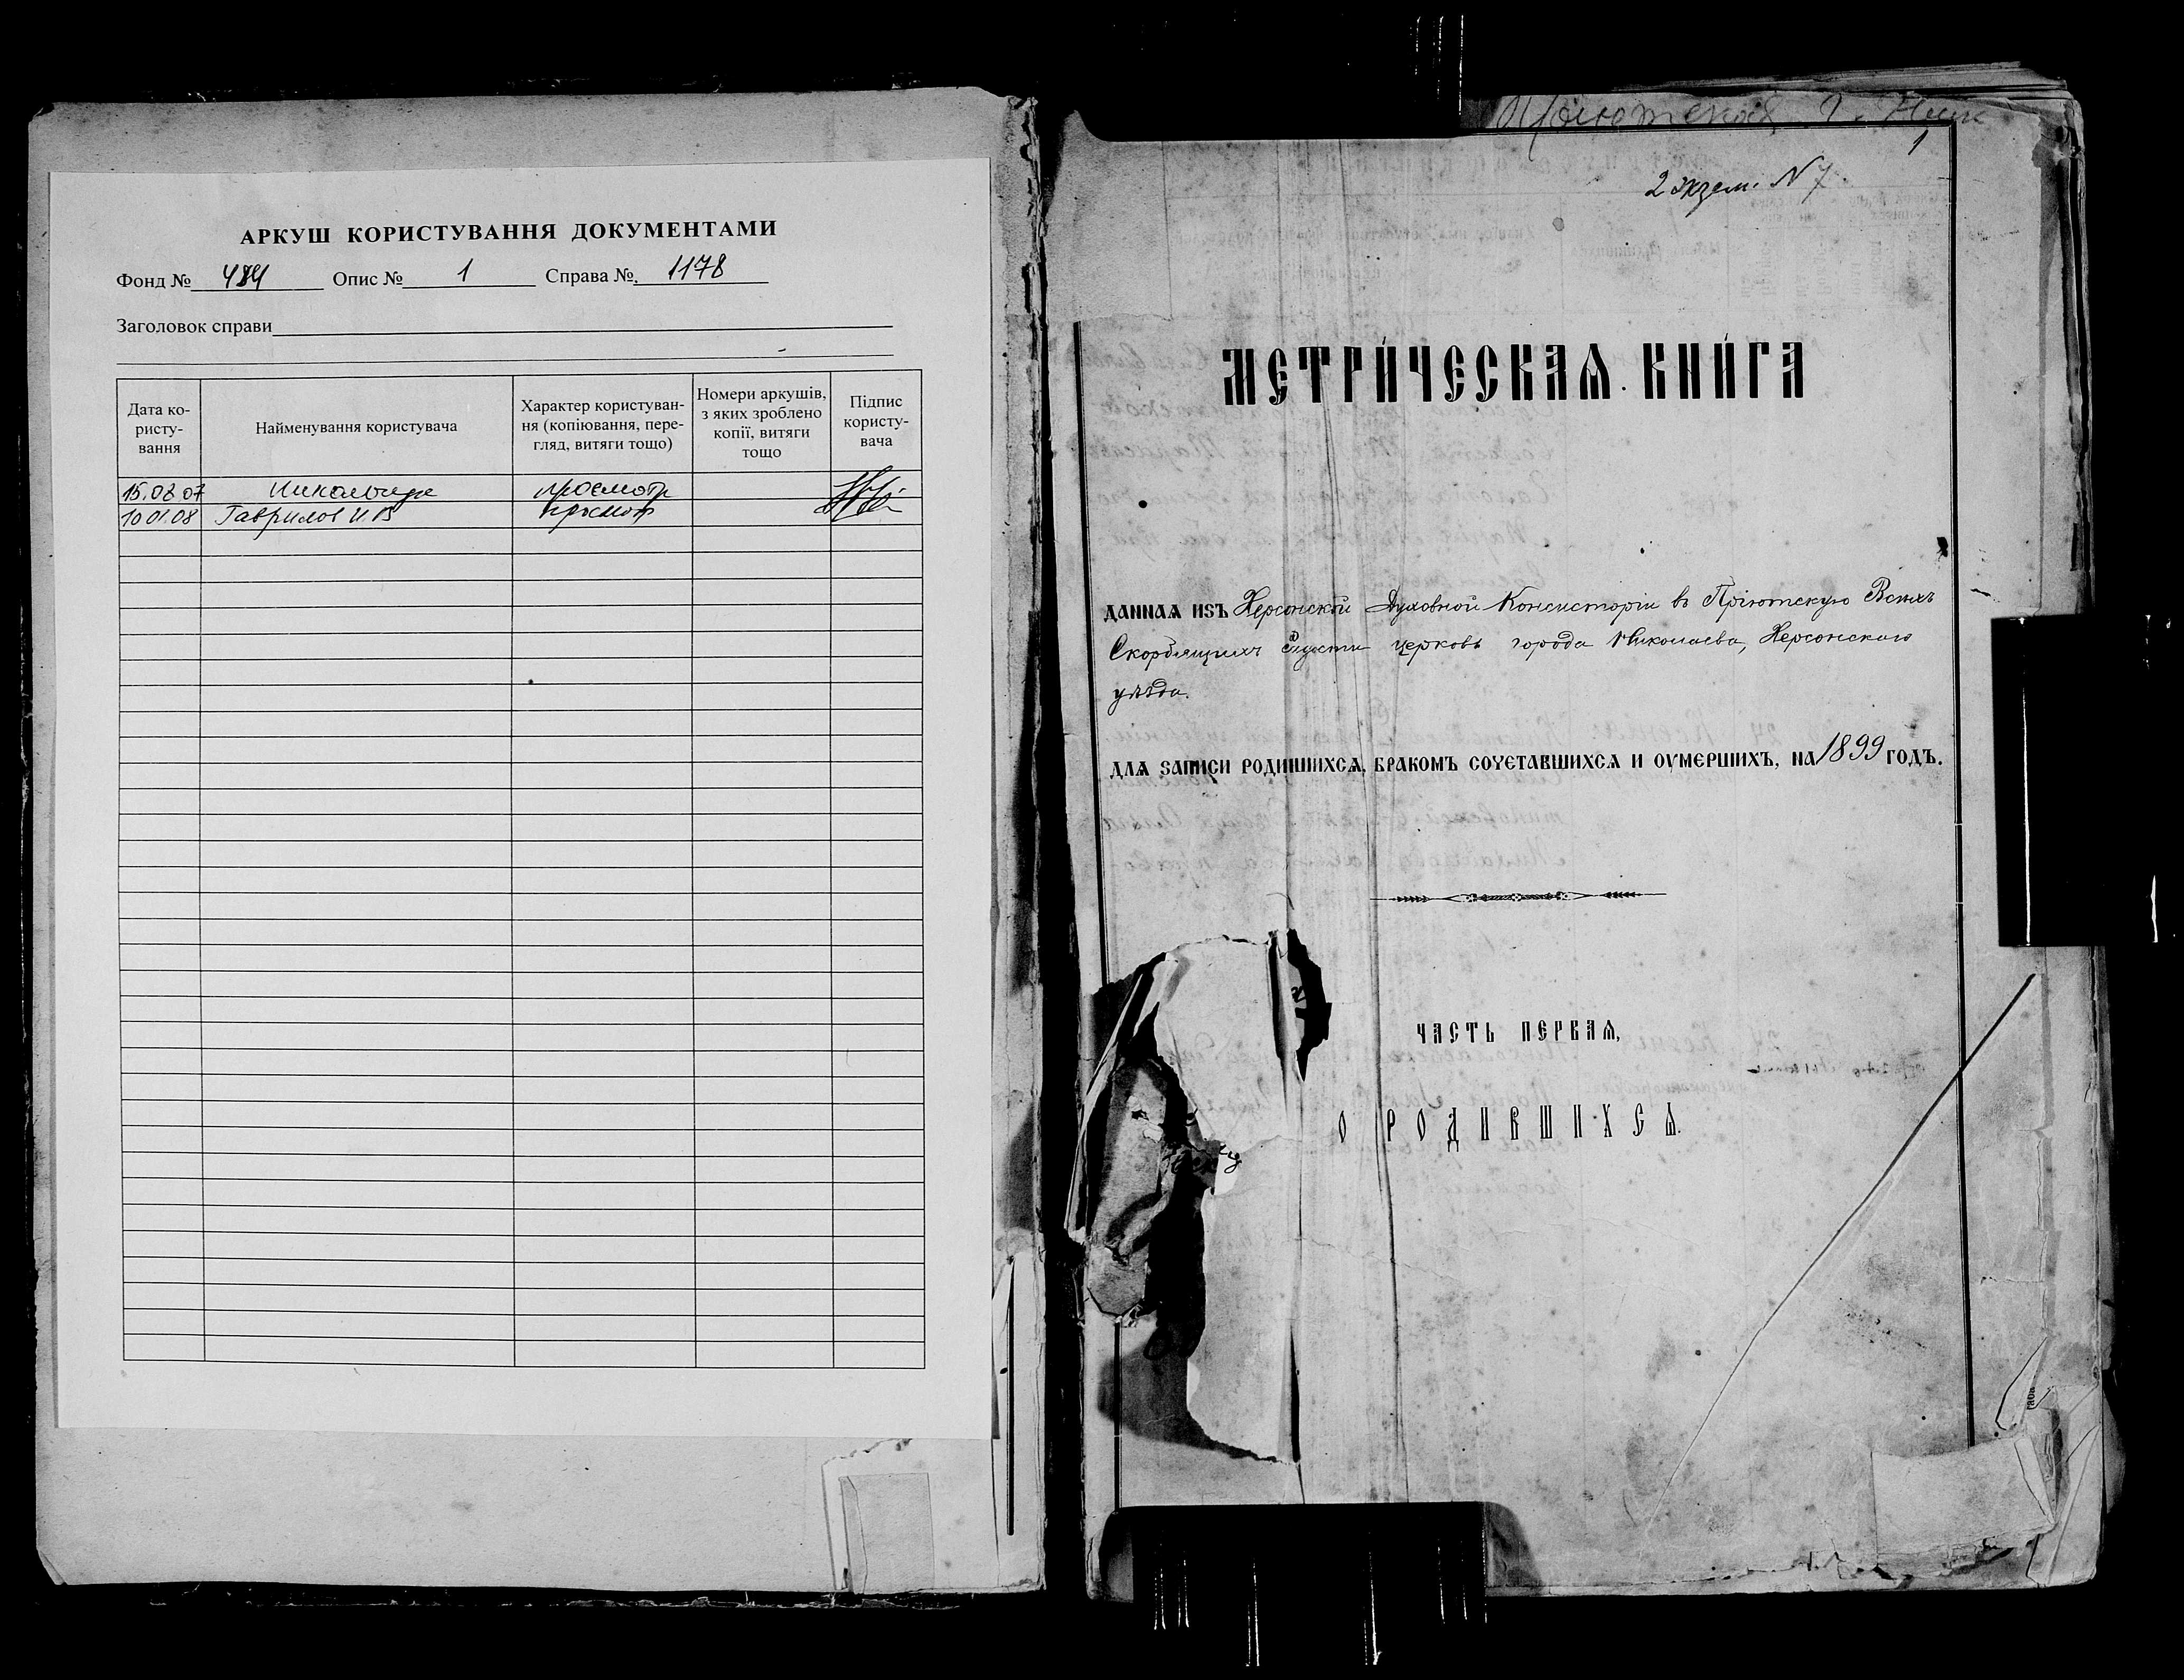 АРКУШ КОРИСТУВАННЯ ДОКУМЕНТАМИ
Фонд № 484 Опис № 1 Справа №. 1178
Заголовок справи
Дата ко-
ристу-
вання
Найменування користувача
Характер користуван-
ня (копіювання, пере-
гляд, витяги тощо)
Номери аркушів,
з яких зроблено
копії, витяги
тощо
Підпис
користу-
вача
15.08.07 просмотр
10.01.08 Гаврилов И.В просмотр
Приютская г. Ник
1
2 экзем. N 7
МЕТРИ́ЧЕСКАѦ КНИ́ГА
ДАННАѦ ИЗЪ Херсонской Духовной Консисторіи въ Пріютскую Всѣхъ
Скорбящихъ Радости церковь города Николаева, Херсонскаго
уѣзда.
ДЛѦ ЗАПИСИ РОДИВШИХСѦ, БРАКОМЪ СОЧЕТАВШИХСѦ И ОУМЕРШИХЪ, НА 1899 ГОДЪ.
ЧАСТЬ ПЕРВАѦ,
О РОДИВШИХСѦ.